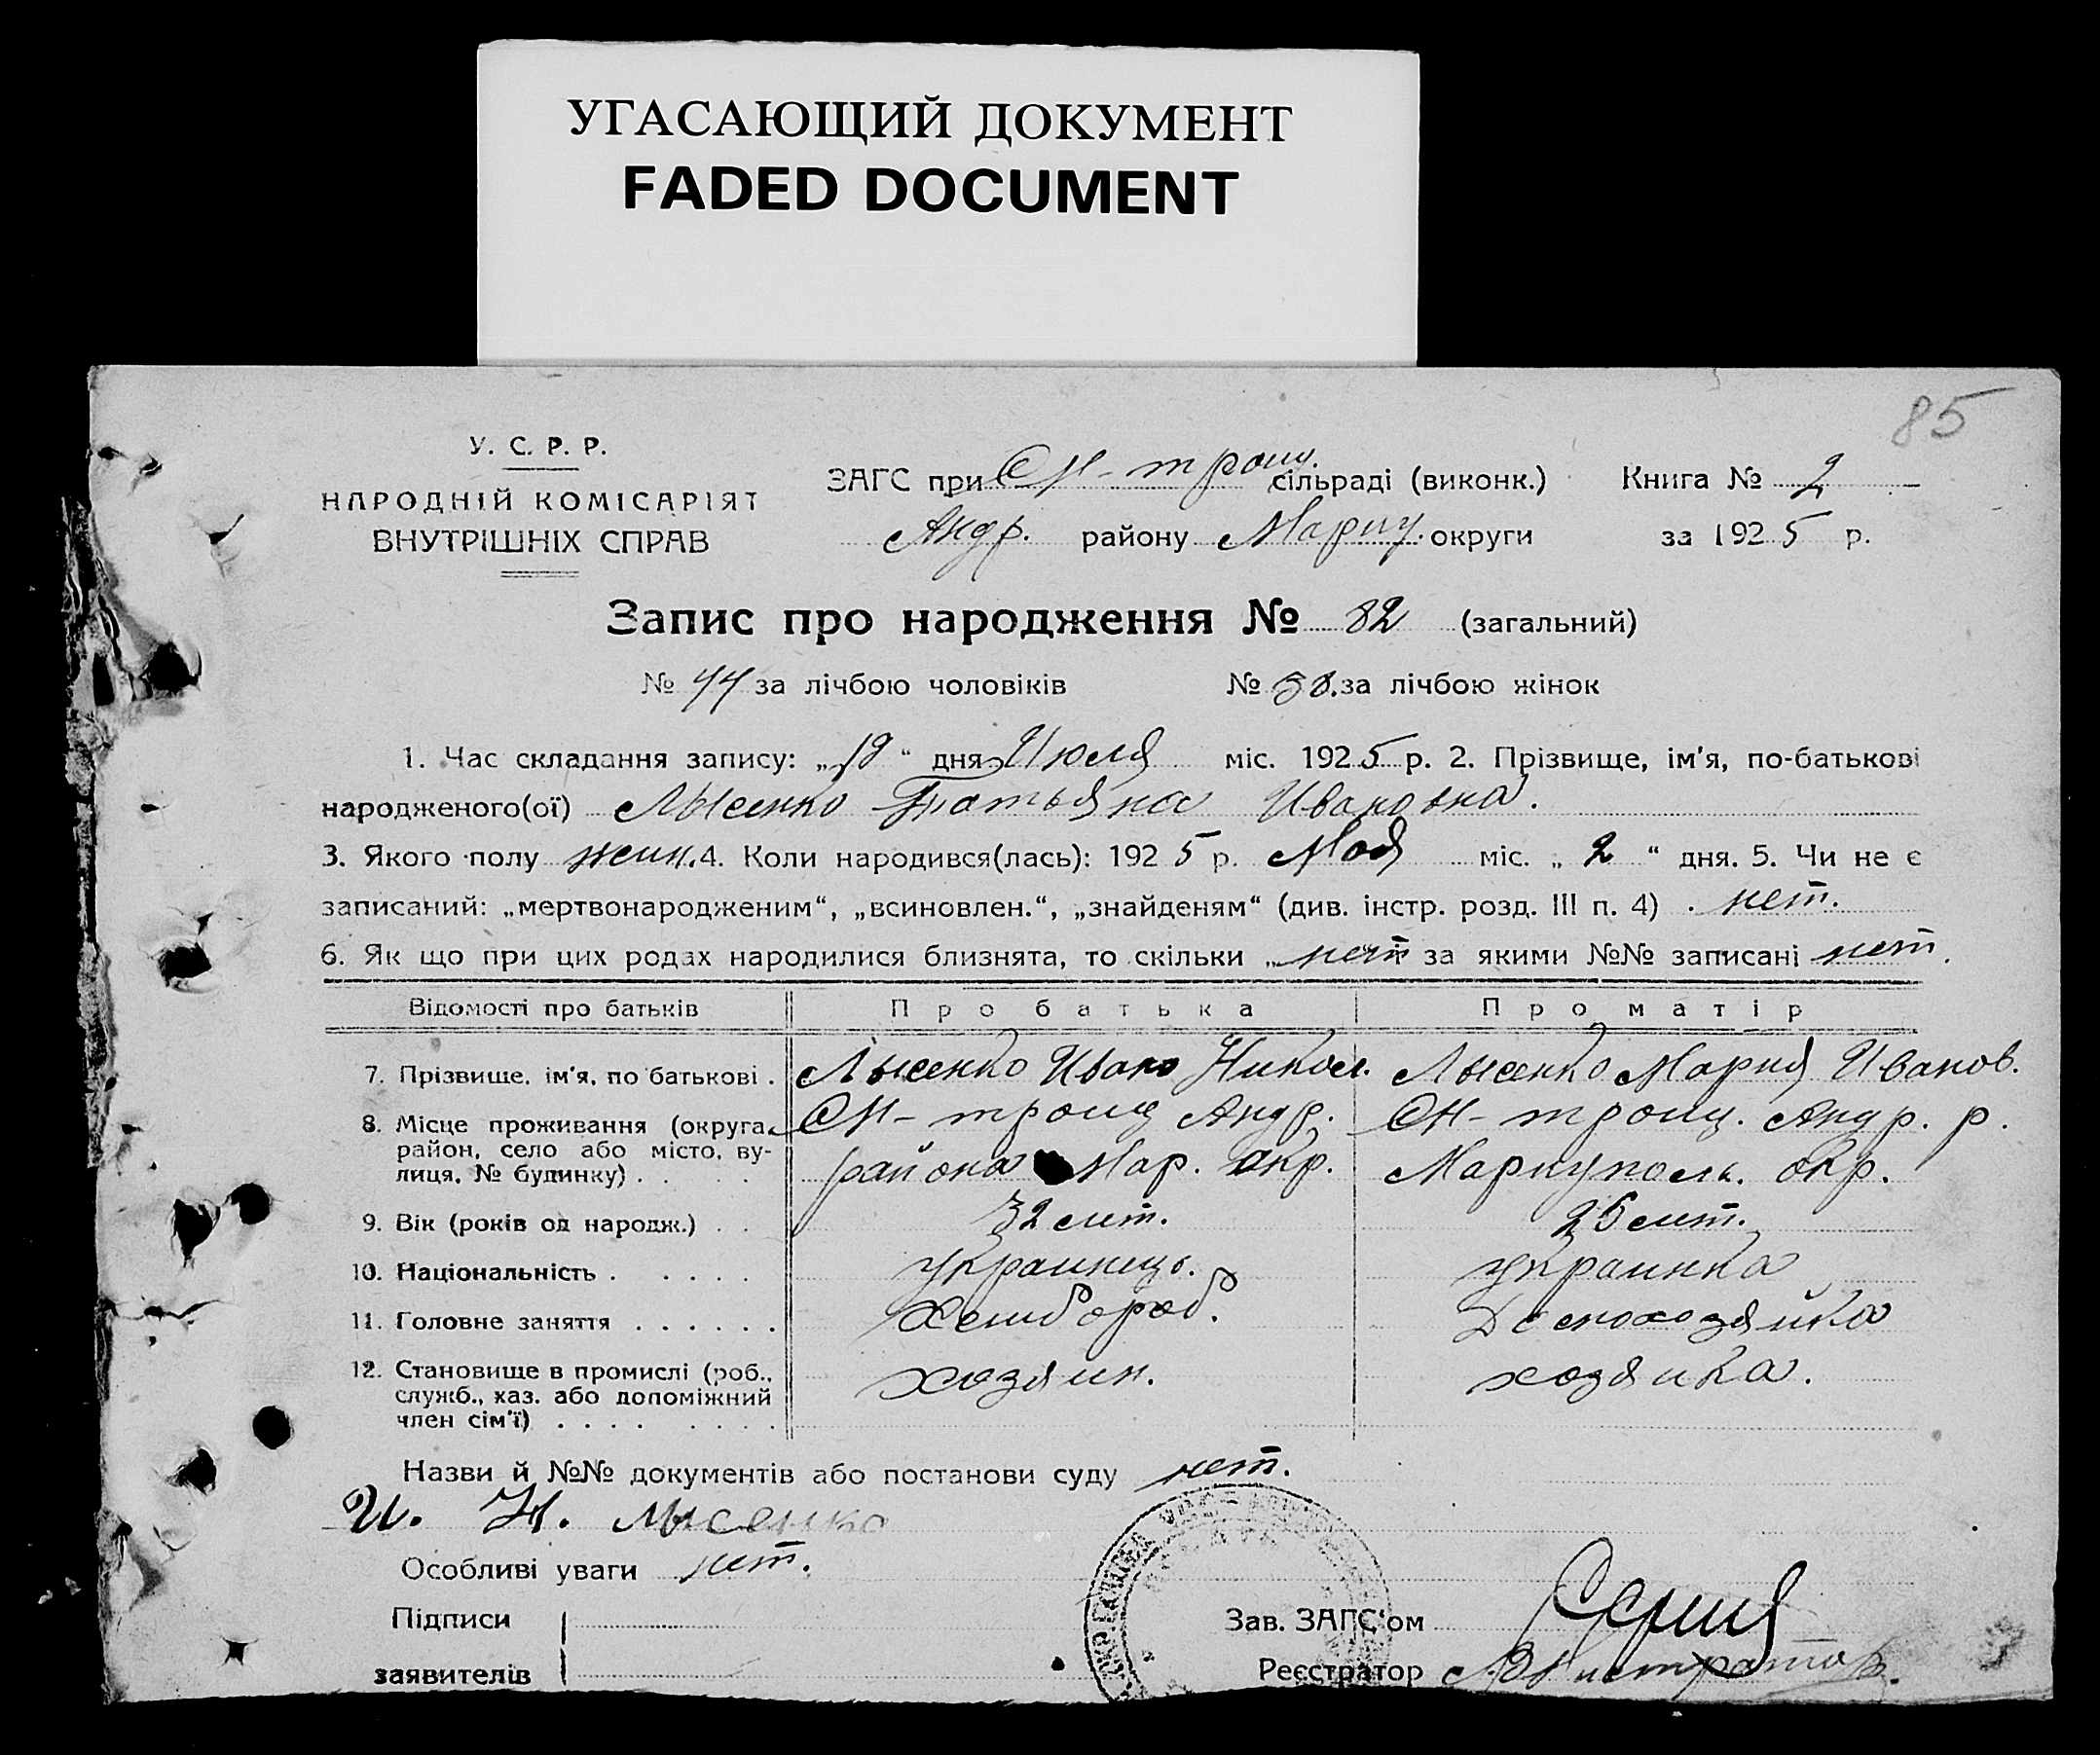 УГАСАЮЩИЙ ДОКУМЕНТ
FADED DOCUMENT
85
У. С. Р. Р.
НАРОДНІЙ КОМІСАРІЯТ
ВНУТРІШНІХ СПРАВ
ЗАГС при СМ-троиц. сільраді (виконк.) Книга № 2
Андр. району Мариу. округи за 1925 р.
Запис про народження № 82 (загальний)
№ 44 за лічбою чоловіків № 38. за лічбою жінок
1. Час складання запису: „19“ дня Июля міс. 1925 р. 2. Прізвище, ім'я, по-батькові
народженого(ої) Лысенко Татьяна Ивановна.
3. Якого полу женн. 4. Коли народився(лась): 1925 р. Мая міс. „2“ дня. 5. Чи не є
записаний: „мертвонародженим“, „всиновлен.“, „знайденям“ (див. інстр. розд. III п. 4) нет.
6. Як що при цих родах народилися близнята, то скільки нет за якими №№ записані нет.
Відомості про батьків Про батька Про матір
7. Прізвище, ім'я, по батькові . Лысенко Иван Никол. Лысенко Мария Иванов.
8. Місце проживання (округа, СМ-троиц Андр. СМ-троиц. Андр. р.
район, село або місто, ву-
лиця, № будинку) . . . района Мар. окр. Мариуполь. окр.
9. Вік (років од народж.) . . 32 лет. 25 лет.
10. Національність . . . . . украинець. украинка
11. Головне заняття . . . . . . Хлебороб. Домохозяйка
12. Становище в промислі (роб., хозяин. хозяйка.
служб., хаз. або допоміжний
член сім'ї) . . . . . . . .
Назви й №№ документів або постанови суду нет.
И. Н. Лысенко
Особливі уваги нет.
Підписи
заявителів
Зав. ЗАГС'ом
Реєстратор